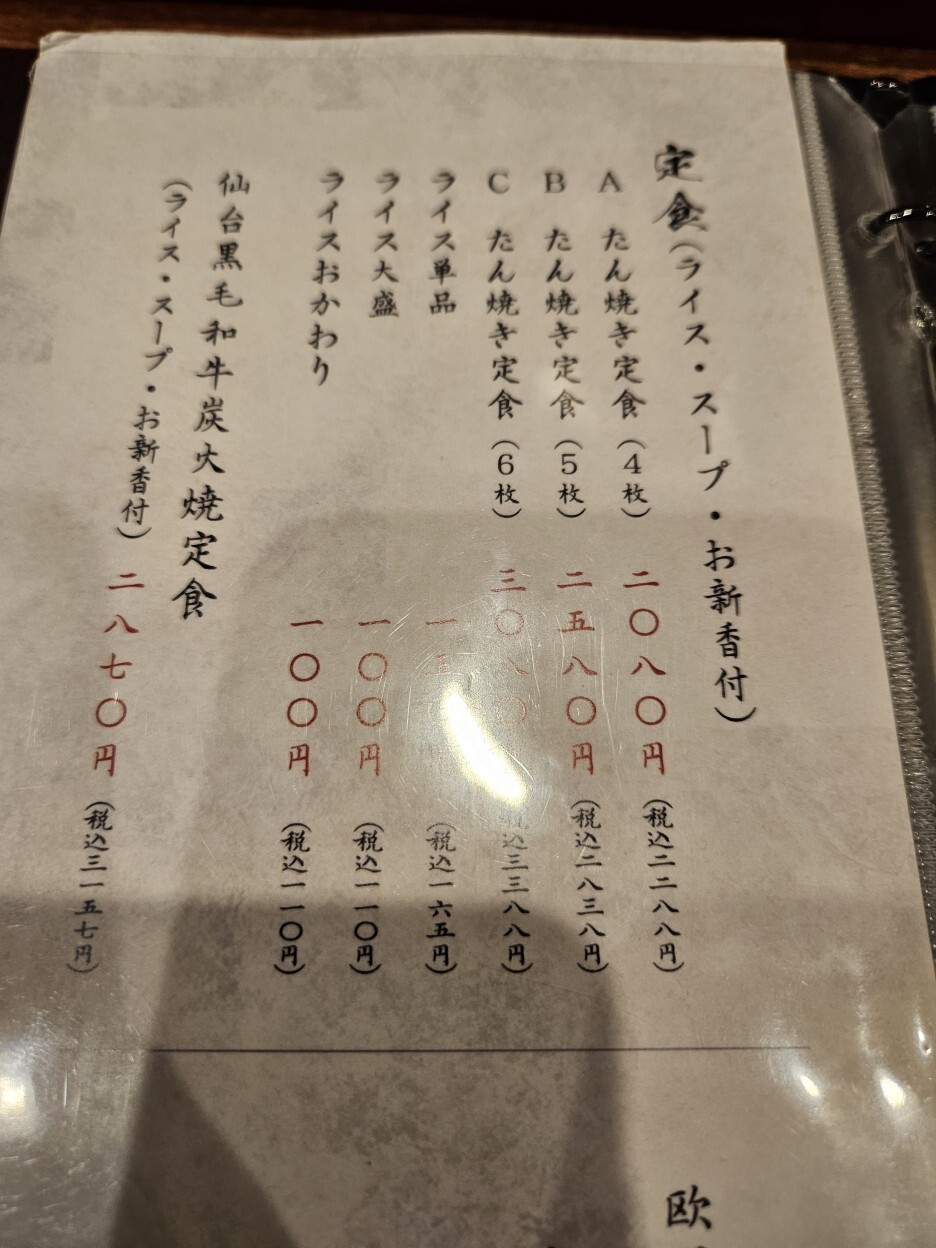 定食(ライス・スープ・お新香付)
A たん焼き定食(4枚) 二〇八〇円(税込二二八八円)
B たん焼き定食(5枚) 二五八〇円(税込二八三八円)
C たん焼き定食(6枚) 三〇八〇(税込三三八八円)
ライス単品 一五〇円(税込一六五円)
ライス大盛 一〇〇円(税込一一〇円)
ライスおかわり 一〇〇円(税込一一〇円)
仙台黒毛和牛炭火焼定食
(ライス・スープ・お新香付) 二八七〇円(税込三一五七円)
欧